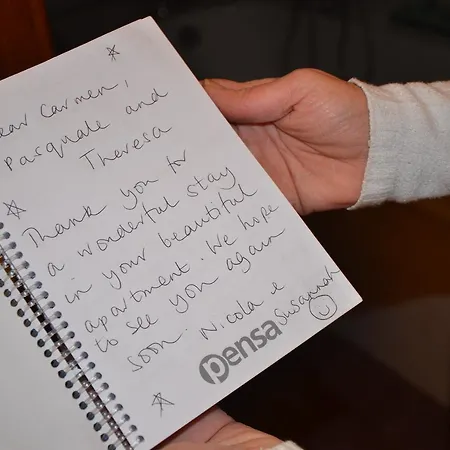 ear Carmen,
Pasquale and
Theresa
Thank you for
a wonderful stay
in your beautiful
apartment. We hope
to see you again
soon. Nicola e
Susannah
pensa